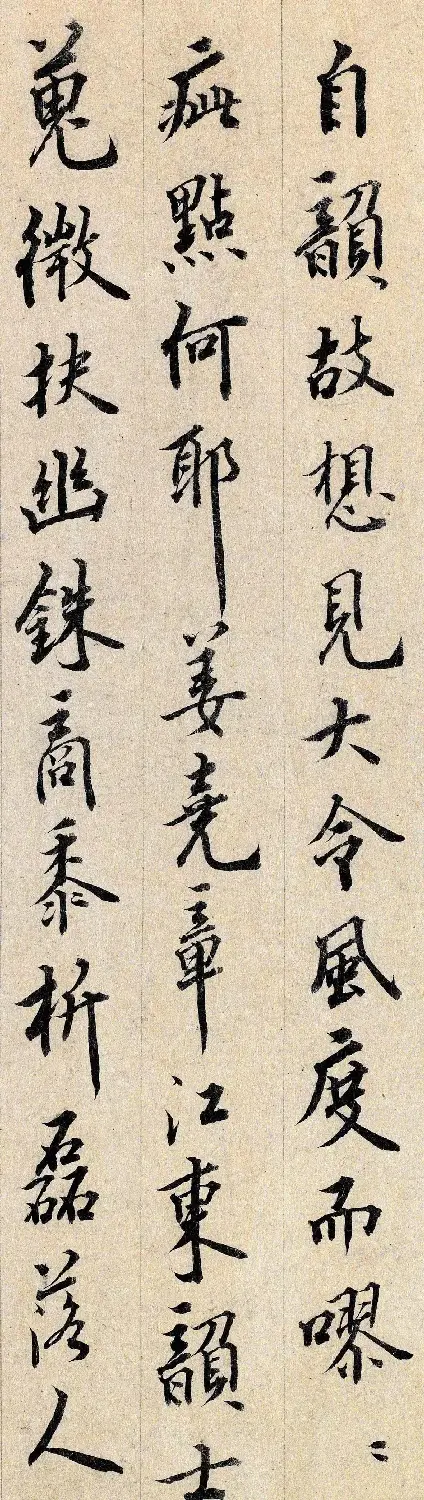 自韻故想見大令風度而嘐〻
疵點何耶姜堯章江東韻士
蒐微抉幽銖商黍析磊落人